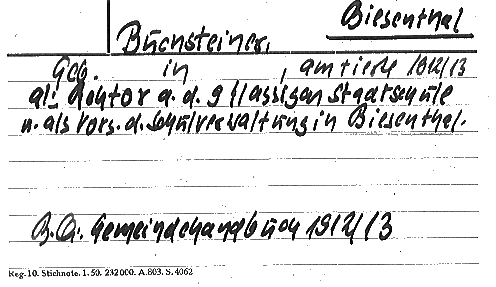 Biesenthal
Buchsteiner,
Geb. in , amtierte 1912/13
als Kantor a. d. 9 klassigen Staatschule
u. als Vors. d. Schulverwaltung in Biesenthal.
B.Q. Gemeindehandbuch 1912/13
Reg. 10. Stichnote. 1. 50. 232000. A.803. S. 4062